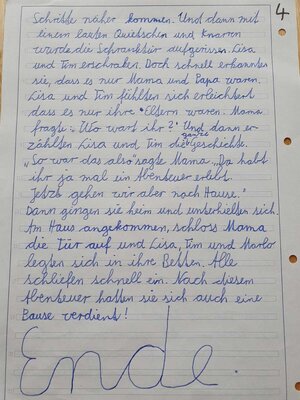 4
Schritte näher kommen. Und dann mit
einem lauten Quietschen und Knarren
wurde die Schranktür aufgerissen. Lisa
und Tim erschraken. Doch schnell erkannten
sie, dass es nur Mama und Papa waren.
Lisa und Tim fühlten sich erleichtert
dass es nur ihre Eltern waren. Mama
fragte: „Wo wart ihr?" Und dann er-
zählten Lisa und Tim die ganze Geschichte.
„So war das also" sagte Mama „Da habt
ihr ja mal ein Abenteuer erlebt.
Jetzt gehen wir aber nach Hause."
Dann gingen sie heim und unterhielten sich.
Am Haus angekommen, schloss Mama
die Tür auf und Lisa, Tim und Marlo
legten sich in ihre Betten. Alle
schliefen schnell ein. Nach diesem
Abenteuer hatten sie sich auch eine
Pause verdient!
Ende.